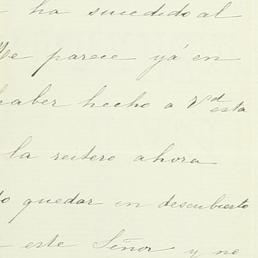 ha sucedido al
parece yá en
haber hecho a Vd esta
la reitero ahora
quedar en descubierto
este Señor y